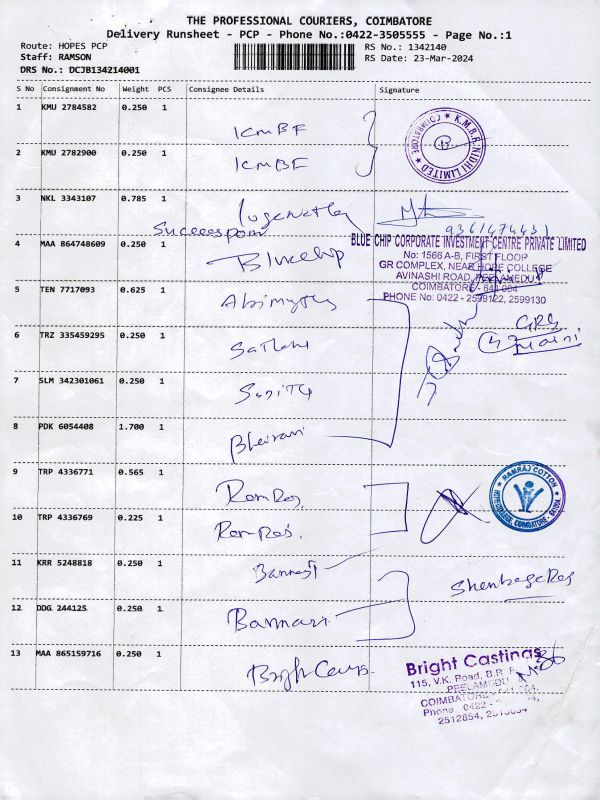 THE PROFESSIONAL COURIERS, COIMBATORE
Delivery Runsheet - PCP - Phone No.:0422-3505555 - Page No.:1
Route: HOPES PCP
RS No.: 1342140
Staff: RAMSON
RS Date: 23-Mar-2024
DRS No.: DCJB134214001
S No Consignment No Weight PCS Consignee Details Signature
1 KMU 2784582 0.250 1
KMBF
K.M.B.F. NIDHI LIMITED ★ COIMBATORE ★
2 KMU 2782900 0.250 1
KMBF
3 NKL 3343107 0.785 1
9361474431
4 MAA 864748609 0.250 1
Bluechip
BLUE CHIP CORPORATE INVESTMENT CENTRE PRIVATE LIMITED
No: 1566 A-B, FIRST FLOOR
GR COMPLEX, NEAR HOPE COLLEGE
AVINASHI ROAD, PEELAMEDU
COIMBATORE - 641 004
PHONE No: 0422 - 2599122, 2599130
5 TEN 7717093 0.625 1
6 TRZ 335459295 0.250 1
7 SLM 342301061 0.250 1
8 PDK 6054408 1.700 1
9 TRP 4336771 0.565 1
RamRaj
RAMRAJ COTTON
10 TRP 4336769 0.225 1
RamRaj.
11 KRR 5248818 0.250 1
Bannari
12 DDG 244125 0.250 1
Bannari
13 MAA 865159716 0.250 1
Bright Castings
115, V.K. Road, B.R.
PEELAMEDU
COIMBATORE
Phone : 0422 -
2512854,